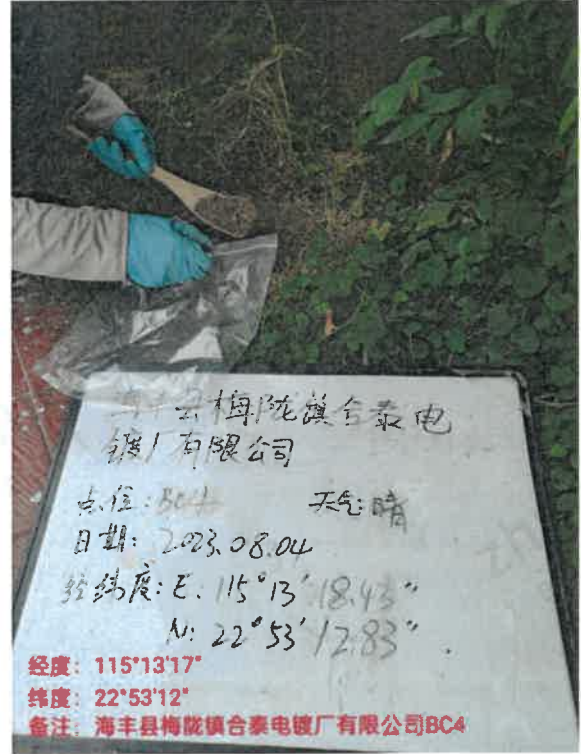 海丰县梅陇镇合泰电
镀厂有限公司
点位:BC4
天气:晴
日期: 2023.08.04
经纬度: E: 115°13′18.43″
N: 22°53′12.83″
经度: 115°13'17"
纬度: 22°53'12"
备注: 海丰县梅陇镇合泰电镀厂有限公司BC4